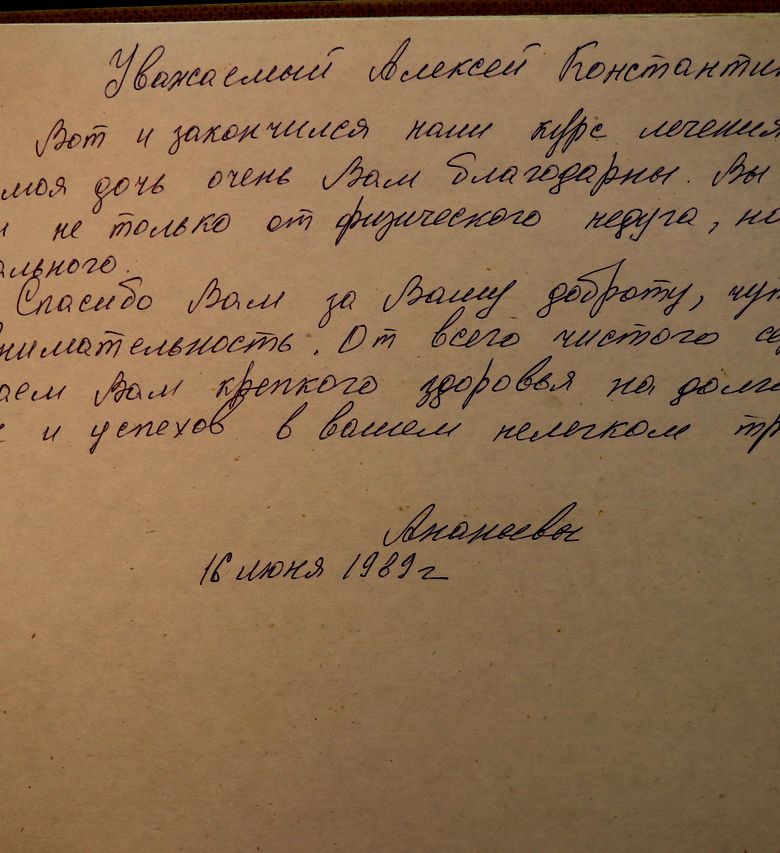 Уважаемый Алексей Константи
Вот и закончился наш курс лечения
моя дочь очень Вам благодарны. Вы
не только от физического недуга, но
ального.
Спасибо Вам за Вашу доброту, чут
нимательность. От всего чистого се
аем Вам крепкого здоровья на долг
и успехов в вашем нелегком тр
Ананьевы
16 июня 1989 г